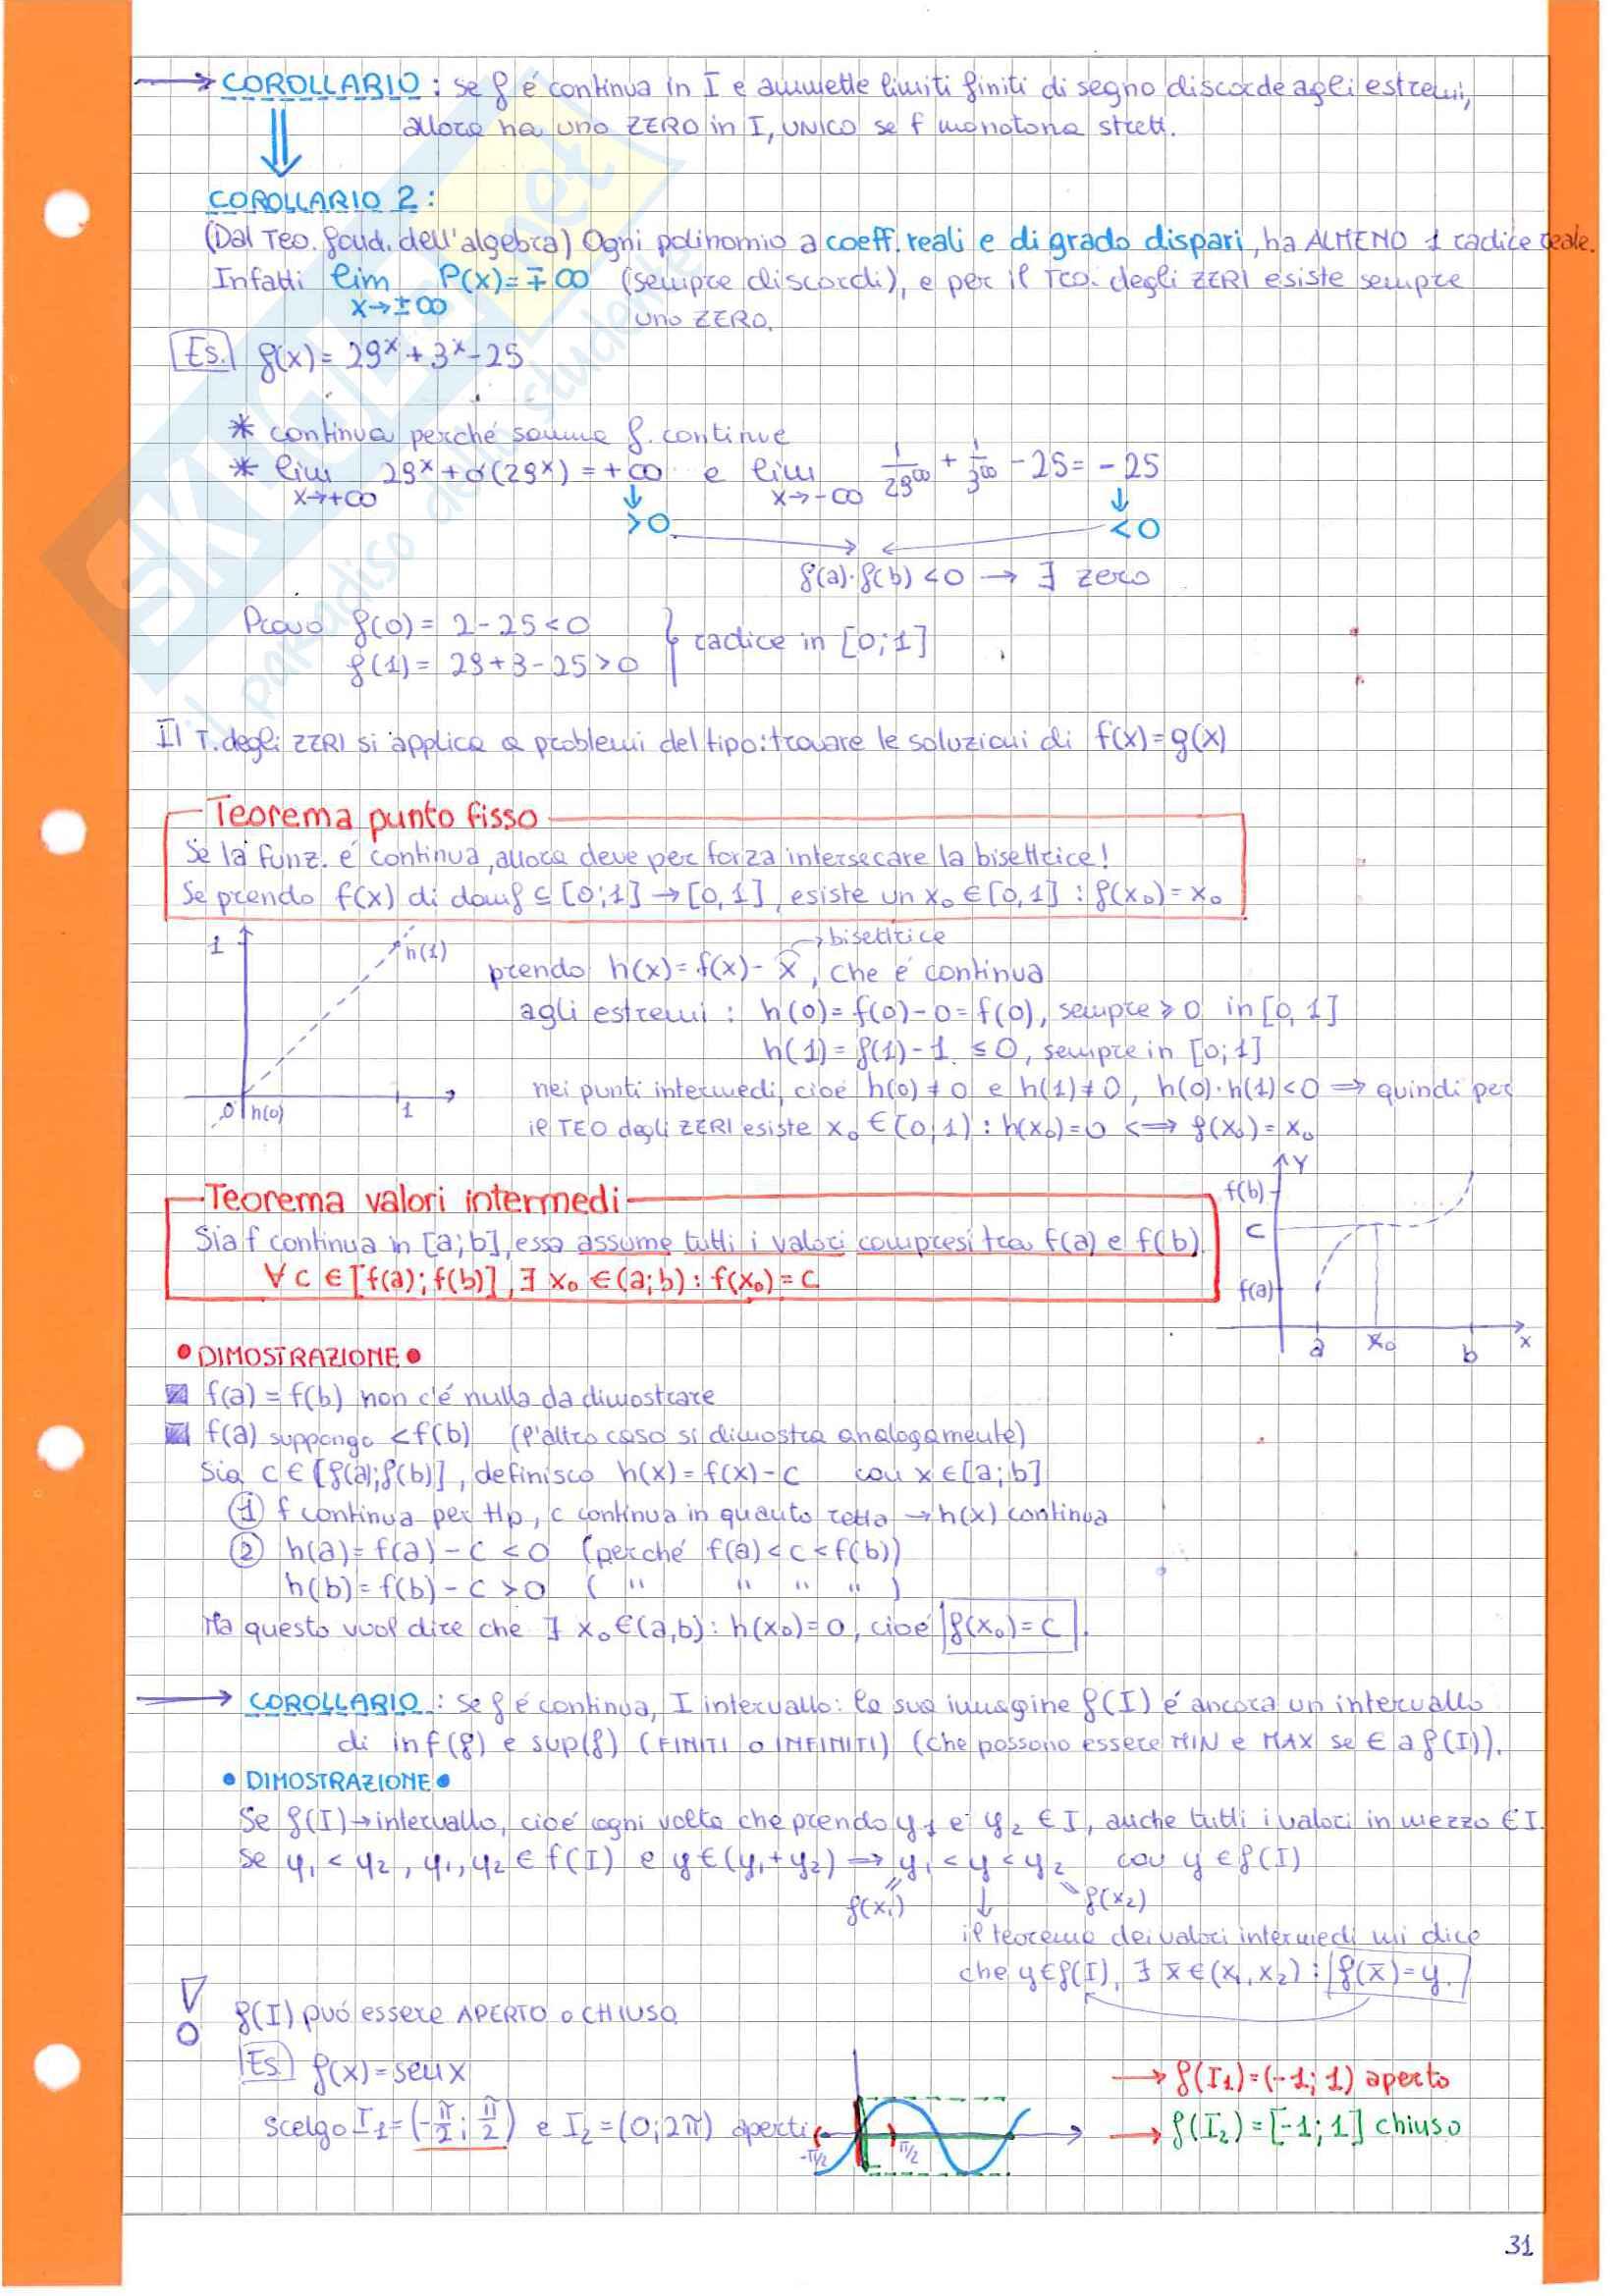 → COROLLARIO: se f é continua in I e ammette limiti finiti di segno discorde agli estremi,
allora ha uno ZERO in I, UNICO se f monotona strett.
COROLLARIO 2:
(Dal Teo. fond. dell'algebra) Ogni polinomio a coeff. reali e di grado dispari, ha ALMENO 1 radice reale.
Infatti lim P(x) = ∓∞ (sempre discordi), e per il Teo. degli ZERI esiste sempre
x→±∞ uno ZERO.
Es. f(x) = 29ˣ + 3ˣ - 25
* continua perché somma f. continue
* lim 29ˣ + o(29ˣ) = +∞ e lim 1/29^∞ + 1/3^∞ - 25 = -25
x→+∞ ↓ x→-∞ ↓
>0 <0
f(a)·f(b) <0 → ∃ zero
Provo f(0) = 2-25<0
f(1) = 29+3-25>0 } radice in [0;1]
Il T. degli ZERI si applica a problemi del tipo: trovare le soluzioni di f(x)=g(x)
Teorema punto fisso
Se la funz. é continua, allora deve per forza intersecare la bisettrice!
Se prendo f(x) di domf ⊆ [0;1] → [0,1], esiste un x₀ ∈ [0,1] : f(x₀) = x₀
1 h(1) → bisettrice
prendo h(x) = f(x) - x, che é continua
agli estremi: h(0) = f(0) - 0 = f(0), sempre ≥ 0 in [0,1]
h(1) = f(1) - 1 ≤ 0, sempre in [0;1]
nei punti intermedi, cioé h(0) ≠ 0 e h(1) ≠ 0, h(0)·h(1) < 0 ⟹ quindi per
0 h(0) 1
il TEO degli ZERI esiste x₀ ∈ (0,1) : h(x₀) = 0 ⟺ f(x₀) = x₀
Teorema valori intermedi
Sia f continua in [a;b], essa assume tutti i valori compresi tra f(a) e f(b).
∀ c ∈ [f(a); f(b)], ∃ x₀ ∈ (a;b) : f(x₀) = c
Y
f(b)
c
f(a)
a x₀ b x
• DIMOSTRAZIONE •
f(a) = f(b) non c'é nulla da dimostrare
f(a) suppongo < f(b) (l'altro caso si dimostra analogamente)
Sia c ∈ [f(a); f(b)], definisco h(x) = f(x) - c con x ∈ [a;b]
① f continua per Hp, c continua in quanto retta → h(x) continua
② h(a) = f(a) - c < 0 (perché f(a) < c < f(b))
h(b) = f(b) - c > 0 ( " " " " )
Ma questo vuol dire che ∃ x₀ ∈ (a,b) : h(x₀) = 0, cioé f(x₀) = c.
→ COROLLARIO: Se f é continua, I intervallo: la sua immagine f(I) é ancora un intervallo
di inf(f) e sup(f) (FINITI o INFINITI) (che possono essere MIN e MAX se ∈ a f(I)).
• DIMOSTRAZIONE •
Se f(I) → intervallo, cioé ogni volta che prendo y₁ e y₂ ∈ I, anche tutti i valori in mezzo ∈ I.
Se y₁ < y₂, y₁, y₂ ∈ f(I) e y ∈ (y₁+y₂) ⟹ y₁ < y < y₂ con y ∈ f(I)
f(x₁) ↓ f(x₂)
il teorema dei valori intermedi mi dice
che y ∈ f(I), ∃ x̄ ∈ (x₁, x₂) : f(x̄) = y.
! f(I) può essere APERTO o CHIUSO
Es. f(x) = sen x
→ f(I₁) = (-1; 1) aperto
scelgo I₁ = (-π/2; π/2) e I₂ = (0; 2π) aperti
-π/2 π/2
→ f(I₂) = [-1; 1] chiuso
31
SKUOLA.net
il paradiso dello studente